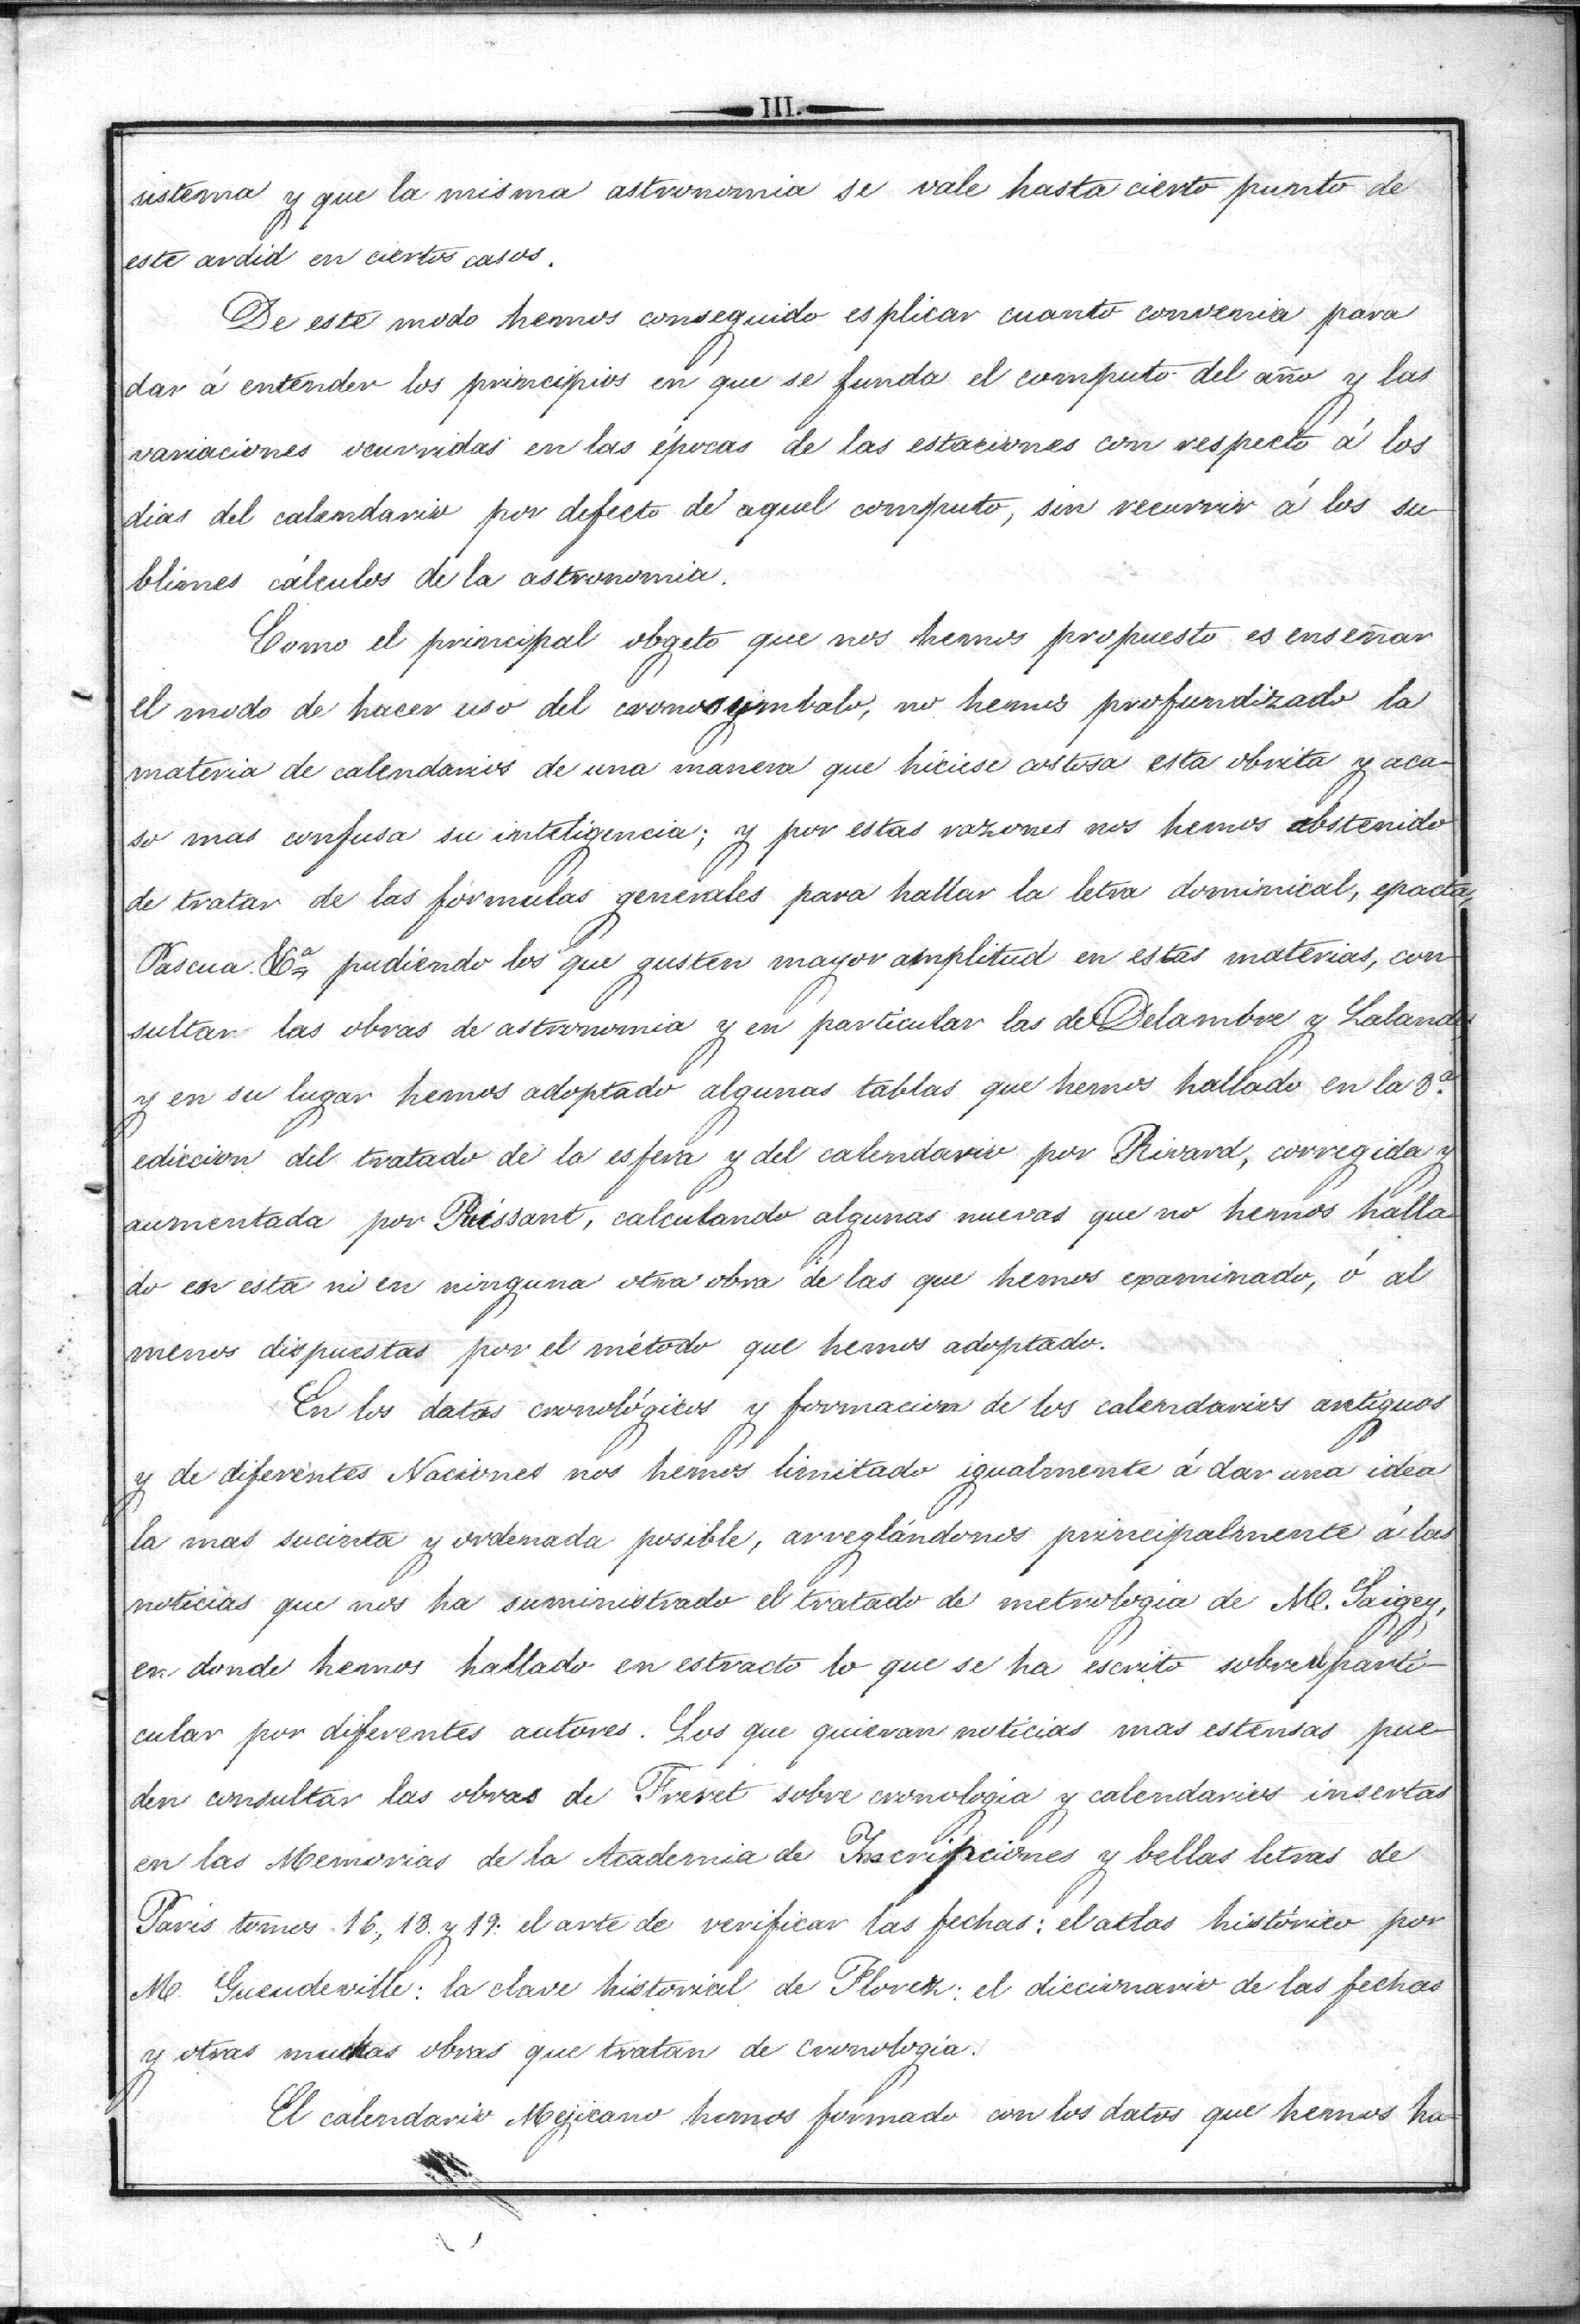 III.
sistema y que la misma astronomia se vale hasta cierto punto de
este ardid en ciertos casos.
De este modo hemos conseguido esplicar cuanto convenia para
dar á entender los principios en que se funda el computo del año y las
variaciones ocurridas en las épocas de las estaciones con respecto á los
dias del calendario por defecto de aquel computo, sin recurrir á los su-
blimes cálculos de la astronomia.
Como el principal obgeto que nos hemos propuesto es enseñar
el modo de hacer uso del cronosymbalo, no hemos profundizado la
materia de calendarios de una manera que hiciese costosa esta obrita y aca-
so mas confusa su inteligencia; y por estas razones nos hemos abstenido
de tratar de las formulas generales para hallar la letra dominical, epacta,
Pascua &ª pudiendo los que gusten mayor amplitud en estas materias, con-
sultar las obras de astronomia y en particular las de Delambre y Lalande
y en su lugar hemos adoptado algunas tablas que hemos hallado en la 8ª
ediccion del tratado de la esfera y del calendario por Rivard, corregida y
aumentada por Puissant, calculando algunas nuevas que no hemos halla-
do en esta ni en ninguna otra obra de las que hemos examinado, ó al
menos dispuestas por el método que hemos adoptado.
En los datos cronológicos y formacion de los calendarios antiguos
y de diferentes Naciones nos hemos limitado igualmente á dar una idea
la mas sucinta y ordenada posible, arreglándonos principalmente á las
noticias que nos ha suministrado el tratado de metrologia de M. Saigey,
en donde hemos hallado en estracto lo que se ha escrito sobre el parti-
cular por diferentes autores. Los que quieran noticias mas estensas pue-
den consultar las obras de Freret sobre cronologia y calendarios insertas
en las Memorias de la Academia de Inscripciones y bellas letras de
Paris tomos 16, 18. y 19: el arte de verificar las fechas: el atlas histórico por
M. Gueudeville: la clave historial de Florez: el diccionario de las fechas
y otras muchas obras que tratan de cronologia.
El calendario Mejicano hemos formado con los datos que hemos ha-